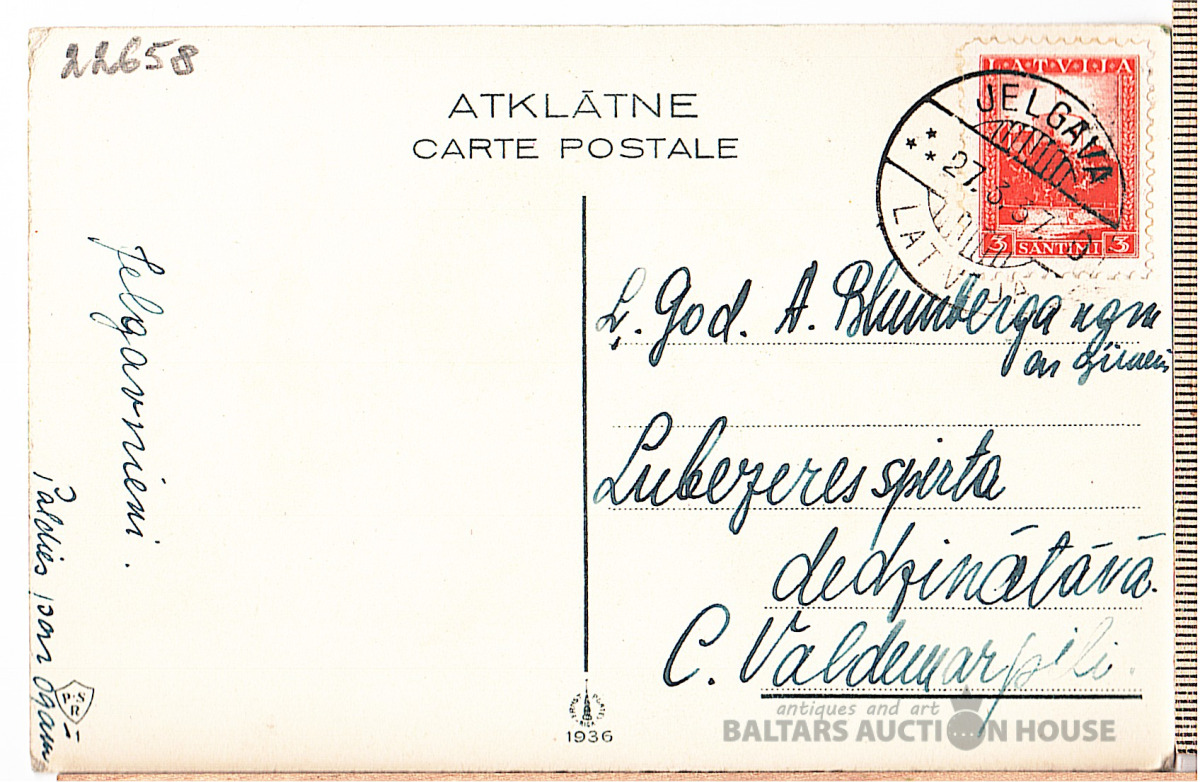 22658
ATKLĀTNE
CARTE POSTALE
LATVIJA
JELGAVA
27.3.37.
LATVIJA
3 SANTIMI 3
Ļ. God. A. Blumberga kgm
un ģimenei
Lubezeres spirta
dedzinātāvā.
C. Valdemarpili.
Jelgavnieni.
Paldies par Ogām
PSR
1936
antiques and art
BALTARS AUCTION HOUSE